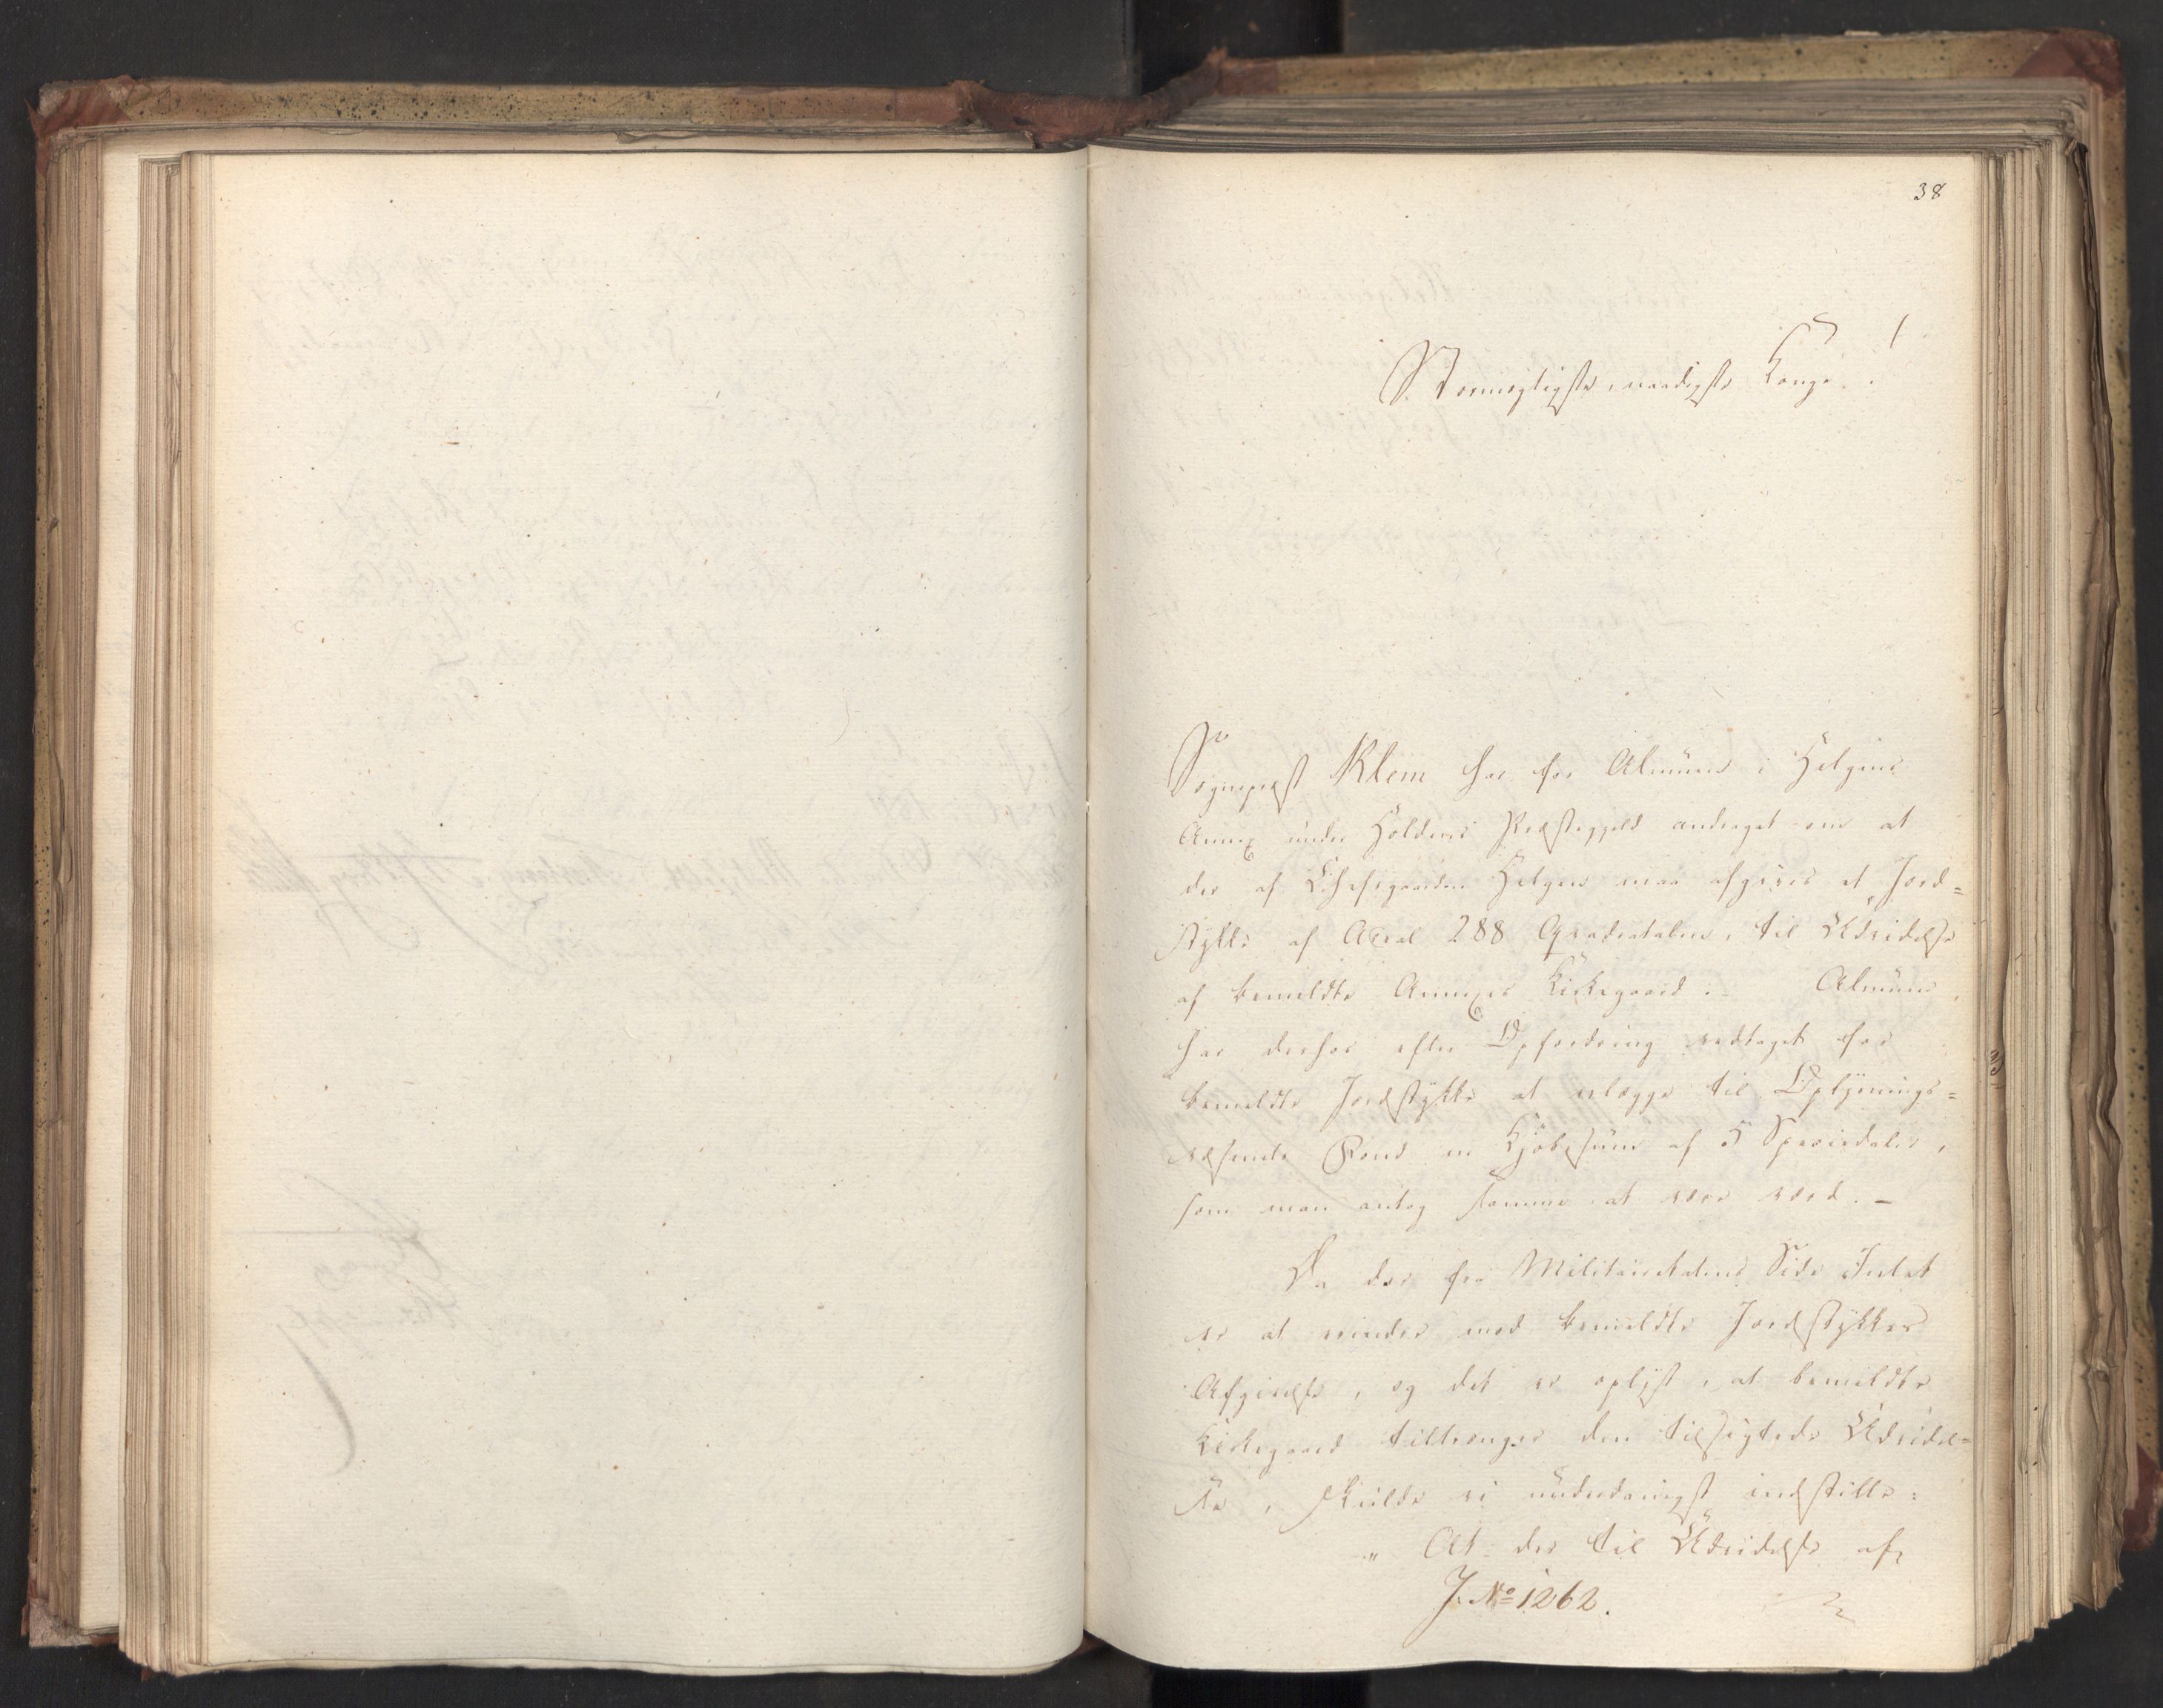 38
Stormægtigste, naadigste Konge!
Sogneprest Klem har for Almuen i Helgens
Annex under Holdens Præstegjeld andraget om at
der af Chefsgaarden Helgen maa afgives et Jord=
stykke af Areal 288 Qvadratalen, til Udvidelse
af bemeldte Annexes Kirkegaard. Almuen,
har derhos efter Opfordring vedtaget for
bemeldte Jordstykke at erlægge til Oplysnings=
væsenets Fond en Kjøbesum af 5 Speciedaler,
som man antog samme at være værd. –
Da der fra Militairetatens Side Intet
er at erindre mod bemeldte Jordstykkes
Afgivelse, og det er oplyst, at bemeldte
Kirkegaard tiltrænger den tilsigtede Udvidel=
se, skulde vi underdanigst indstille:
„ At der til Udvidelse af
J. No 1262.